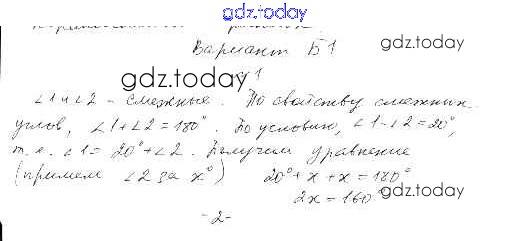 gdz.today
Вариант Б1
gdz.today
gdz.today
№1
∠1 и ∠2 - смежные. По свойству смежных
углов, ∠1+∠2=180°. По условию, ∠1-∠2=20°,
т.е. ∠1= 20°+∠2. Получим уравнение
(примем ∠2 за x°) 20°+x+x=180°
2x=160°
gdz.today
-2-